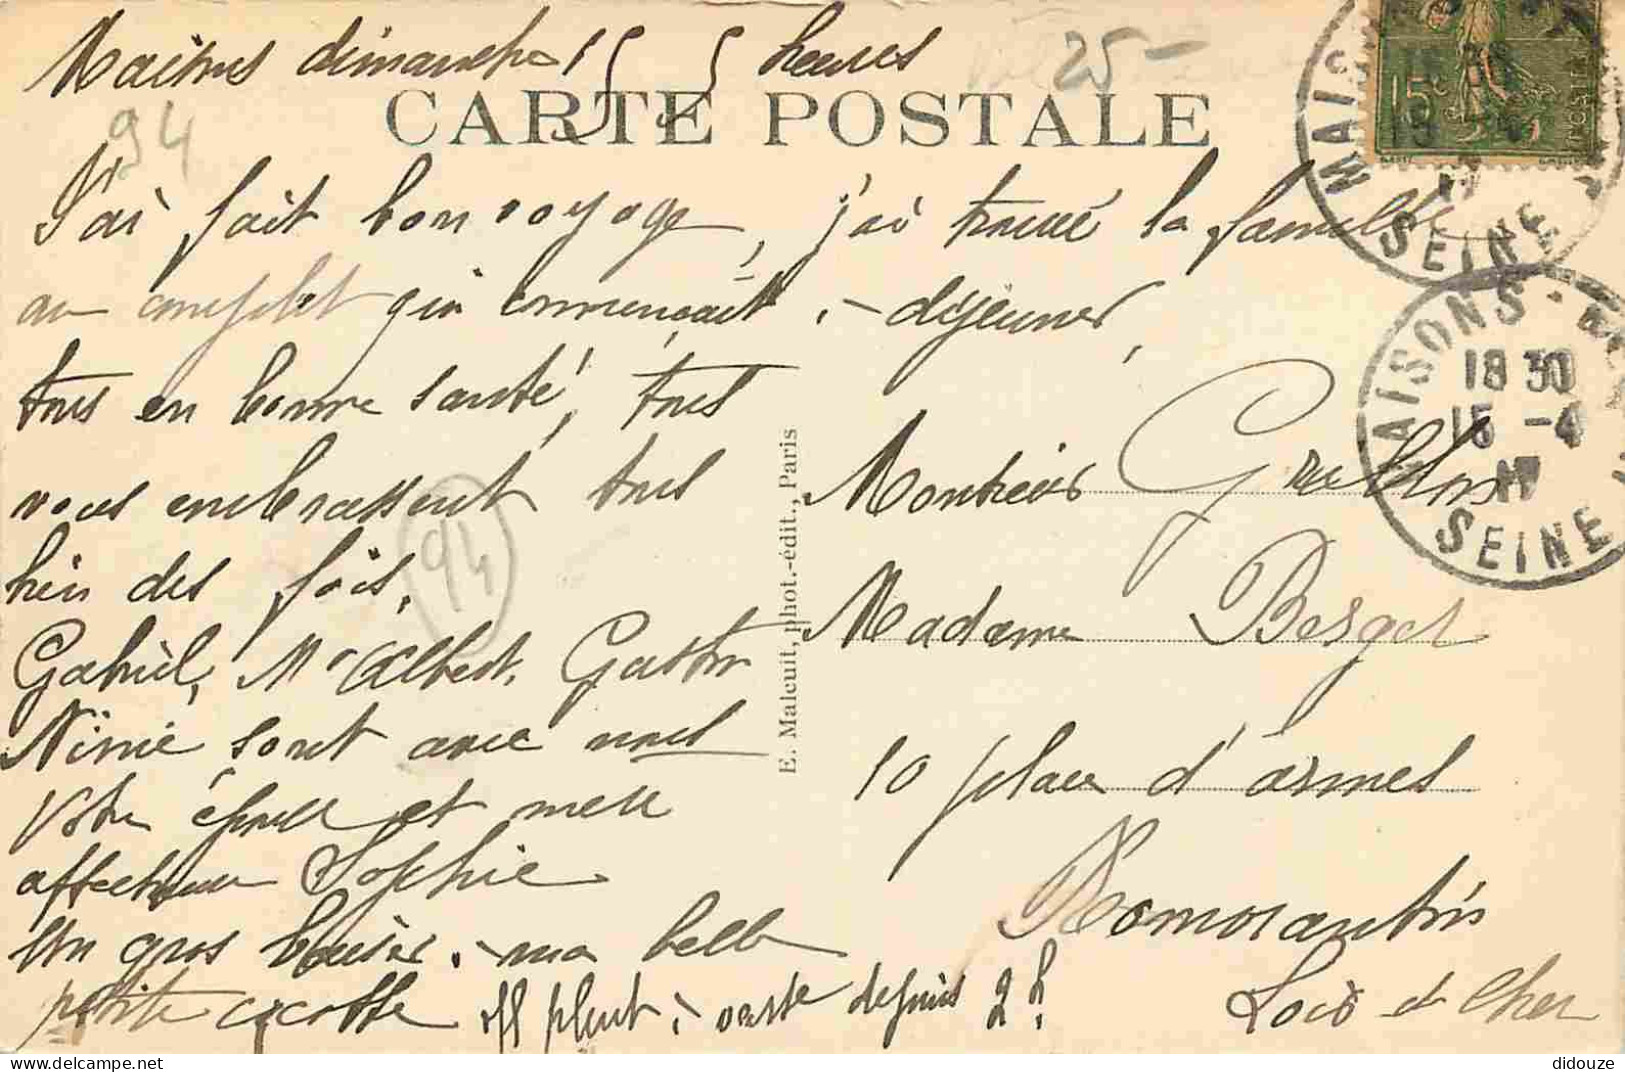 Maisons dimanche 15 5 heures
25-
CARTE POSTALE
94
J'ai fait bon voyage, j'ai trouvé la famille
au complet qui commençait à déjeuner,
tous en bonne santé, tous
vous embrassent tous
bien des fois.
94
Gabriel, Mr Albert, Gaston
Ninie sont avec nous
Votre et
affectueuse Sophie
Un gros baiser à ma belle
petite cocotte il pleut à verse depuis 2 h.
E. Malcuit, phot.-édit., Paris
Monsieur
Madame Berger
10 place d'armes
Romorantin
Loir et Cher
15c
MAISONS
SEINE
MAISONS-
18 30
15 -4
17
SEINE
didouze